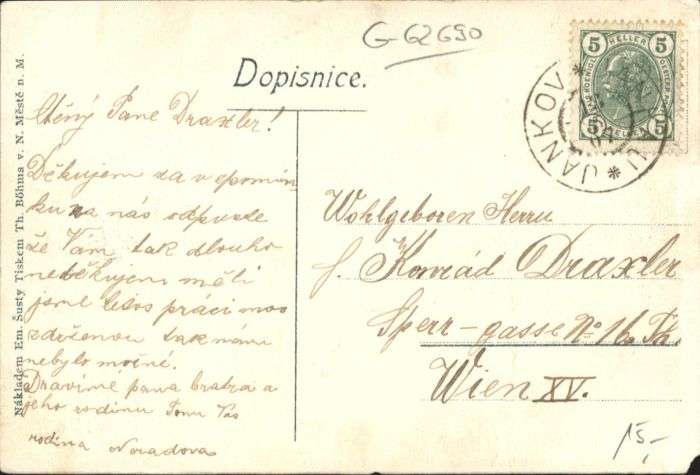 G-62690
Dopisnice.
5 HELLER 5
5 HELLER 5
JANKOV * JANKAU *
Ctěný Pane Draxler!
Děkujem za vzpomín
ku na nás odpusťte
že Vám tak dlouho
neděkujem měli
jsme letos práci moc
zdrženou tak nám
nebylo možné.
Pozdravíme pana bratra a
jeho rodinu
rodina
Wohlgeboren Herrn
H. Konrád Draxler
Sperr-gasse No 16. Th.
Wien XV.
15,-
Nákladem Em. Šusty Tiskem Th. Böhma v. N. Městě n. M.